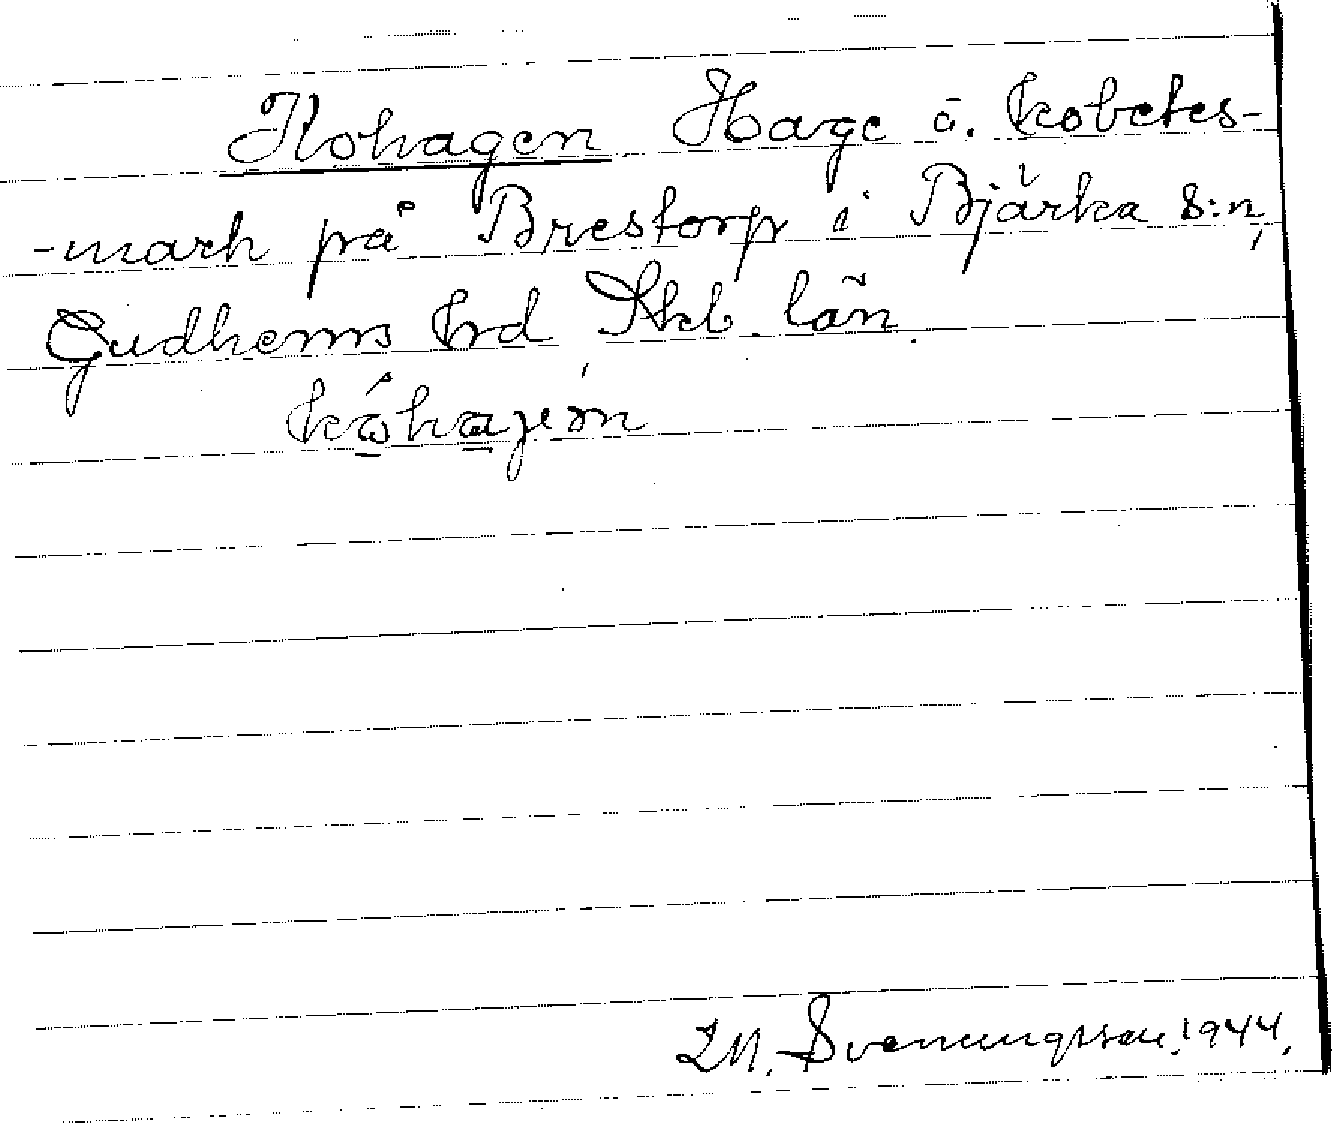 Kohagen Hage o. kobetes-
-mark på Brestorp i Bjärka s:n,
Gudhems hrd Skb. län.
kóhajen
M. Svenungsson. 1944.